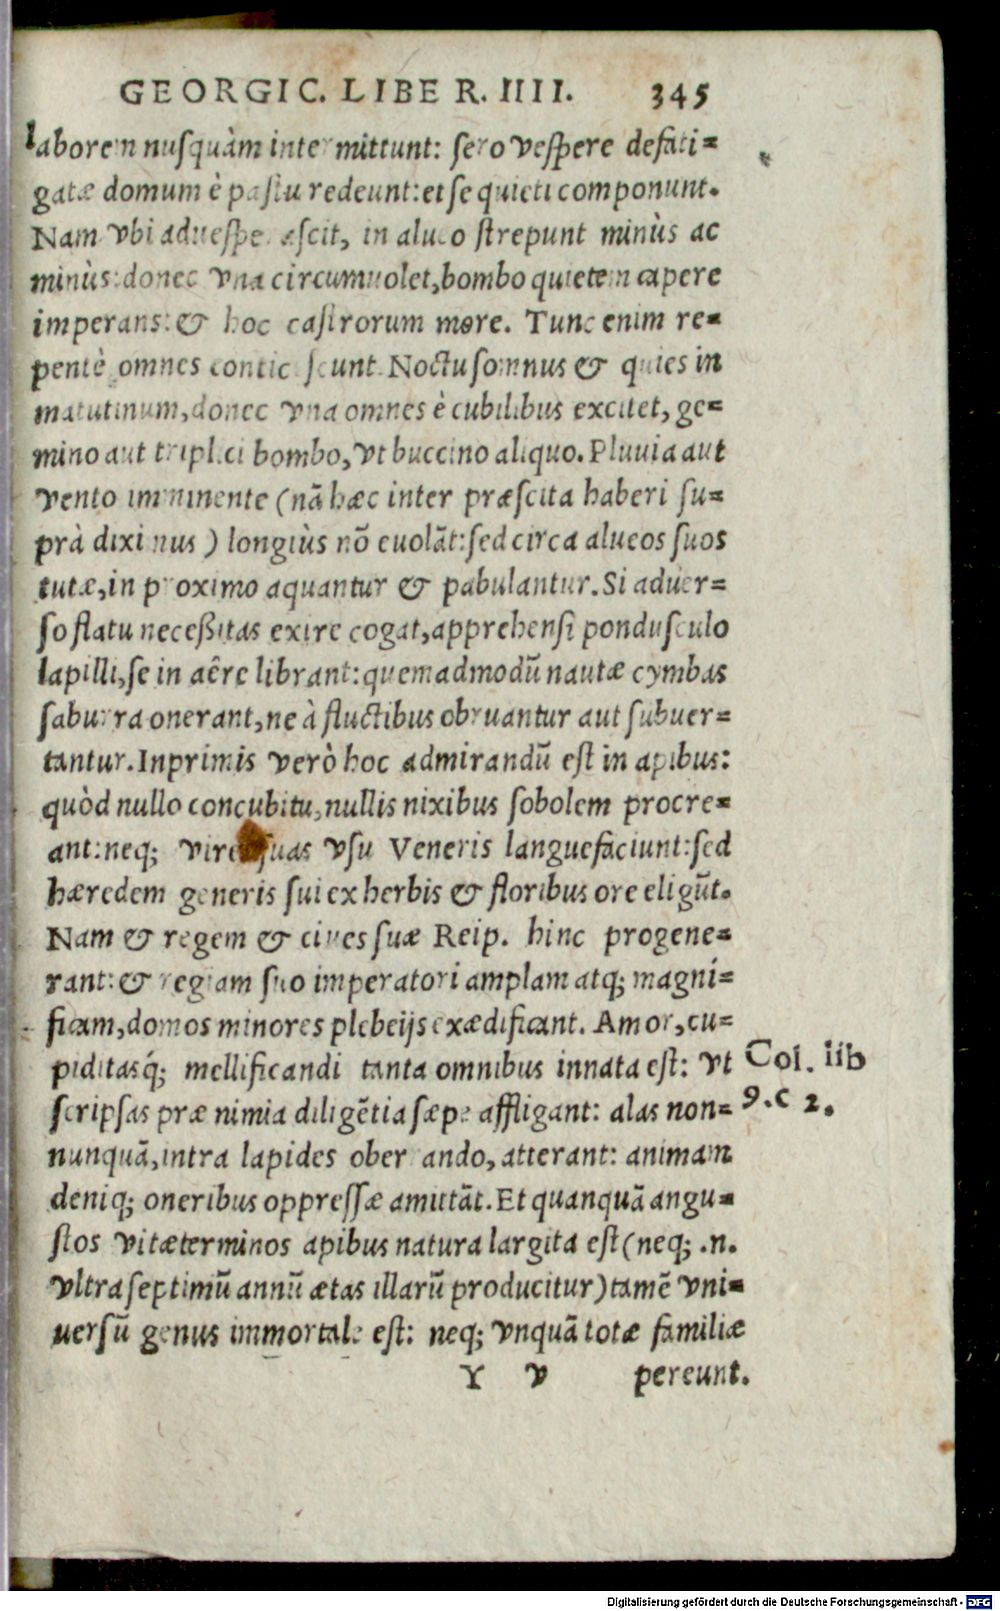 GEORGIC. LIBER. IIII. 345
laborem nusquàm intermittunt: sero vespere defati-
gatæ domum è pastu redeunt: et se quieti componunt.
Nam vbi aduesperascit, in alueo strepunt minùs ac
minùs: donec vna circumuolet, bombo quietem capere
imperans: & hoc castrorum more. Tunc enim re-
pentè omnes conticescunt. Noctu somnus & quies in
matutinum, donec vna omnes è cubilibus excitet, ge-
mino aut triplici bombo, vt buccino aliquo. Pluuia aut
vento imminente (nā hæc inter præscita haberi su-
prà diximus) longiùs nō euolāt: sed circa alueos suos
tutæ, in proximo aquantur & pabulantur. Si aduer-
so flatu neceßitas exire cogat, apprehensi pondusculo
lapilli, se in aêre librant: quemadmodū nautæ cymbas
saburra onerant, ne à fluctibus obruantur aut subuer-
tantur. Inprimis verò hoc admirandū est in apibus:
quòd nullo concubitu, nullis nixibus sobolem procre-
ant: neq; vires suas vsu Veneris languefaciunt: sed
hæredem generis sui ex herbis & floribus ore eligūt.
Nam & regem & ciues suæ Reip. hinc progene-
rant: & regiam suo imperatori amplam atq; magni-
ficam, domos minores plebeijs exædificant. Amor, cu-
piditasq́; mellificandi tanta omnibus innata est: vt
Col. lib
scripsas præ nimia diligētia sæpe affligant: alas non-
9. c 2.
nunquā, intra lapides oberrando, atterant: animam
deniq; oneribus oppressæ amittāt. Et quanquā angu-
stos vitæ terminos apibus natura largita est (neq; .n.
vltra septimū annū ætas illarū producitur) tamē vni-
uersū genus immortale est: neq; vnquā totæ familiæ
Y v pereunt.
Digitalisierung gefördert durch die Deutsche Forschungsgemeinschaft - DFG